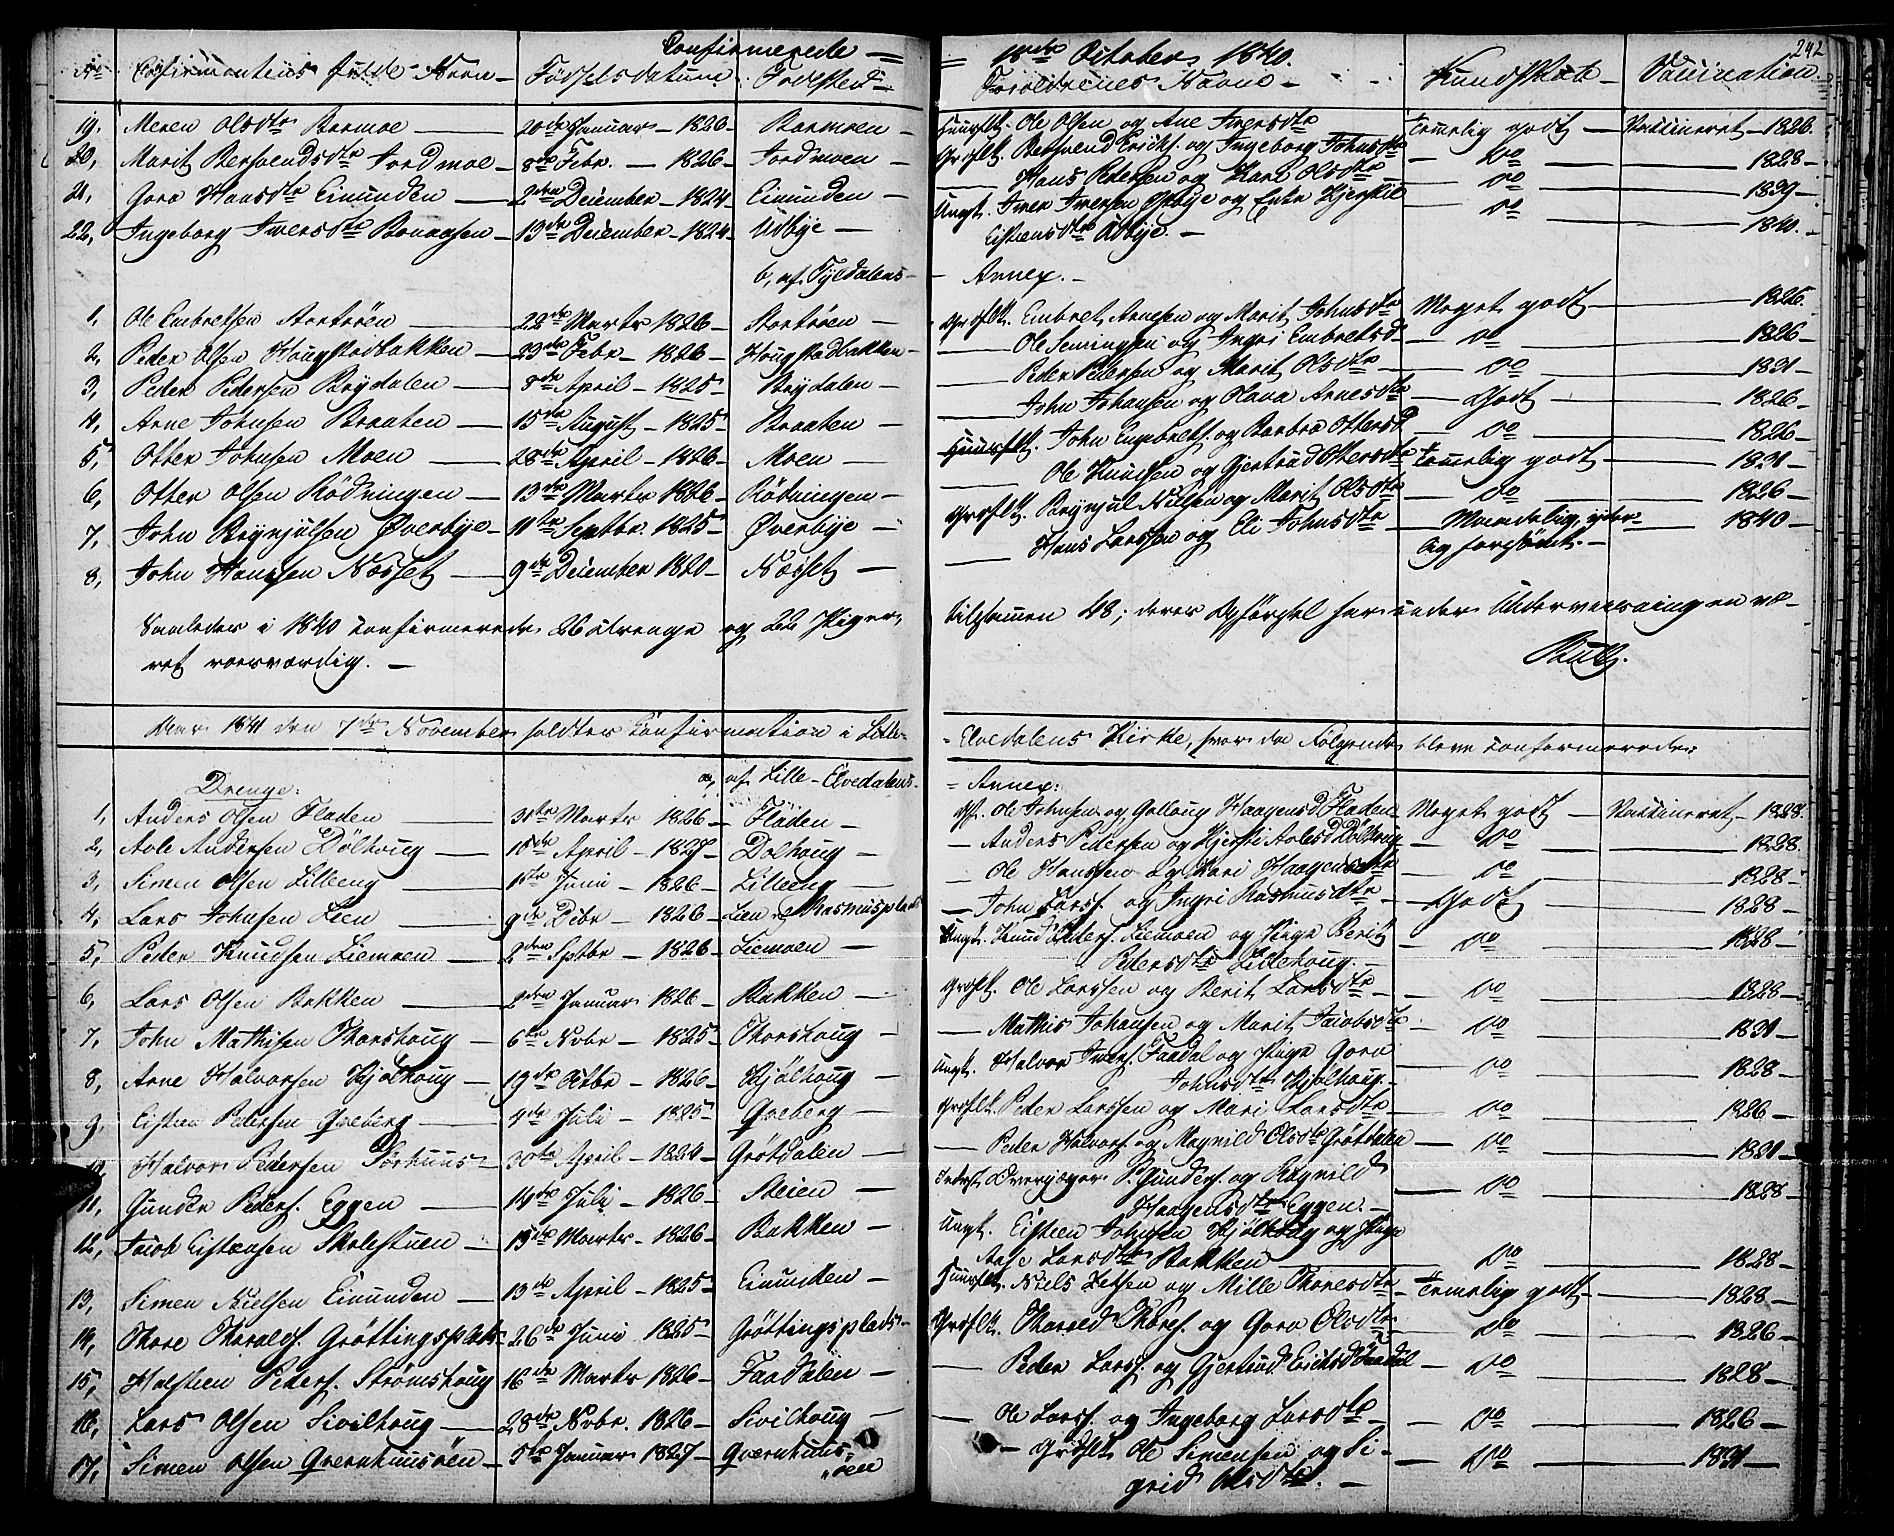 Confirmerede = = 18de October 1840. 242
No Confirmantens fulde Navn - Fødselsdatum Fødested Forældrenes Navne - Kundskab Vaccination
19. Meren Olsdtr Barmoe 20de Januar - 1826 - Barmoen - Huusflk. Ole Olsen og Ane Iversdtr Temelig godt - Vaccineret - 1826.
20, Marit Bersvendsdtr Jordmoe - 8de Febr. - 1826 - Jordmoen - Grdflk. Bersvend Ericks. og Ingeborg Johnsdtr - Do - 1828 -
21, Goro Hansdtr Eimunden - 2den December - 1824 - Eimunden - Hans Pedersen og Kari Olsdtr - Do - 1839 -
22, Ingeborg Iversdtr Benaasen - 13de December - 1824 - Udbye - Ungk. Iver Iversen Østbye og Enke Kjersti - Do - 1840. -
Eistensdtr Udbye. -
b, af Tyldalens - - Annex. -
1, Ole Embretsen Stortrøen - 22de Martz 1826 - Stortrøen - Grdflk. Embret Arnesen og Marit Johnsdtr Meget godt - 1826.
2, Peder Olsen Hougstadbakken - 23de Febr - 1826 - Hougstadbakken - Ole Semingsen og Ingri Embretsd - Do - 1826 -
3, Peder Pedersen Brydalen - 8de April - 1825 - Brydalen - Peder Pedersen og Marit Olsdtr - Do - 1831 -
4, Arne Johnsen Braaten - 15de August - 1825 - Braaten - John Johansen og Olava Arnesdtr - Godt - 1826 -
5, Otter Johnsen Moen - 28de April - 1826 - Moen - Huusflk. John Engebrets. og Barbro Ottersd - Do - 1826 -
6, Otter Olsen Rödningen - 13de Martz 1826 - Rödningen - Ole Knudsen og Gjertrud Ottersdtr Temelig godt - 1831 -
7, John Brynjulsen Øverbye - 11te Septbr. 1825 - Øverbye - Grdflk. Brynjul Nilsen og Marit Olsdtr - Do - 1826 -
8, John Hansen Næsset - 9de December 1820 - Næsset - Hans Larssen og Eli Johnsdtr - Maadelig, yder- - 1840 -
lig forsømt. -
Saaledes i 1840 confirmerede 26 Drenge og 22 Piger, tilsammen 48; deres Opførsel har under Underviisningen væ-
ret roesværdig. -
Aar 1841 den 7de November holdtes Confirmation i Lille- - Elvedalens Kirke, hvor da Følgende bleve confirmerede:
a, af Lille-Elvedalens = Annex:
Drenge:
1, Anders Olsen Fladen 31te Martz 1826 - Fladen - Gf. Ole Johnsen og Gollaug Haagensd Fladen Meget godt - Vaccineret - 1828.
2, Aole Andersen Dölhoug 15de April - 1827 - Dölhoug - - Anders Pedersen og Kjersti Aolesd Dölhoug - Do - 1828.
3, Simen Olsen Lilleeng 1ste Juni - 1826 - Lilleeng - - Ole Hanssen og Mari Haagensdtr - Do - 1828 -
4, Lars Johnsen Lien 9de Debr - 1826 - Lien, Rasmusplads - John Larss. og Ingri Rasmusdtr - Godt - 1828 -
5, Peder Knudsen Liemoen - 2den Sptbr - 1826 - Liemoen - Ungk. Knud Peders. Liemoen og Pige Berit - Do - 1828 -
Pedersdtr Lillehoug. -
6, Lars Olsen Bakken 2den Januar 1826 - Bakken - Grdflk. Ole Larssen og Berit Larsdtr - Do - 1828 -
7, John Mathisen Thorshoug - 6te Nvbr - 1825 - Thorshoug - Mathis Johansen og Marit Jacobsdtr - Do - 1831 -
8, Arne Halvorsen Kjølhoug - 19de Octbr - 1826 - Kjølhoug - Ungk. Halvor Ivers. Faadal og Pige Goro - Do - 1828 -
Johnsdtr Kjølhoug. -
9, Eistein Pedersen Qveberg - 4de Juli - 1825 - Qveberg - Grdflk. Peder Larssen og Mari Larsdtr - Do - 1826 -
10, Halvor Pedersen Sörhuus 30te April - 1824 - Grötdalen - Peder Halvors. og Magnild Olsdtr Grötdalen - Do - 1831 -
11, Gunder Peders. Eggen - 14de Juli - 1826 - Steien - Overjæger P. Gunders. og Ragnild - Do - 1828
Haagensdtr Eggen. -
12, Jacob Eistensen Skolestuen - 15de Martz - 1826 - Bakken - Ungk. Eistein Johnsen Kjølhoug og Pige
Aase Larsdtr Bakken Do - 1828 -
13, Simen Nielsen Eimunden - 13de April - 1825 - Eimunden - Huusflk. Niels Zetsen og Mille Thoresdtr - Temelig godt - 1828 -
14, Thore Haralds. Gröttingsplads - 26de Juni 1825 - Gröttingsplads - Grdflk. Harald Thores. og Goro Olsdtr - Do - 1826 -
15, Halstein Peders. Strömshoug 16de Martz 1826 - Faadalen - Peder Larss. og Gjertrud Ericksd Faadal - Do - 1828 -
16, Lars Olsen Sivilhoug - 28de Nvbr. 1826 - Sivilhoug - Ole Larss. og Ingeborg Larsdtr - Do - 1826 -
17, Simen Olsen Qvernhuusöen - 5te Januar 1827 - Qvernhuus- - Grdflk Ole Simensen og Si- - Do - 1831 -
öen grid Olsdtr. -